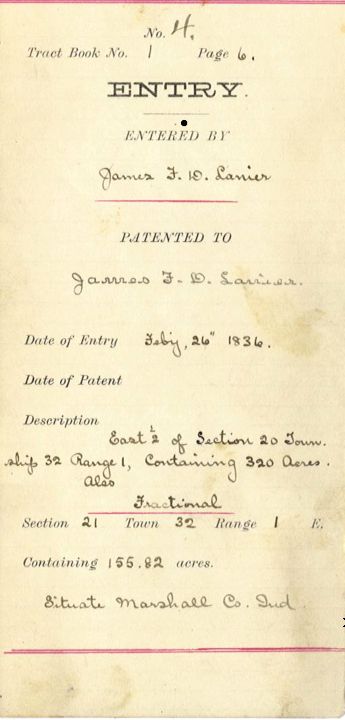 No. 4.
Tract Book No. 1 Page 6.
ENTRY.
ENTERED BY
James F. D. Lanier
PATENTED TO
James F. D. Lanier.
Date of Entry Feby, 26" 1836.
Date of Patent
Description
East ½ of Section 20 Town.
ship 32 Range 1, Containing 320 Acres.
Also
Fractional
Section 21 Town 32 Range 1 E.
Containing 155.82 acres.
Situate Marshall Co. Ind.